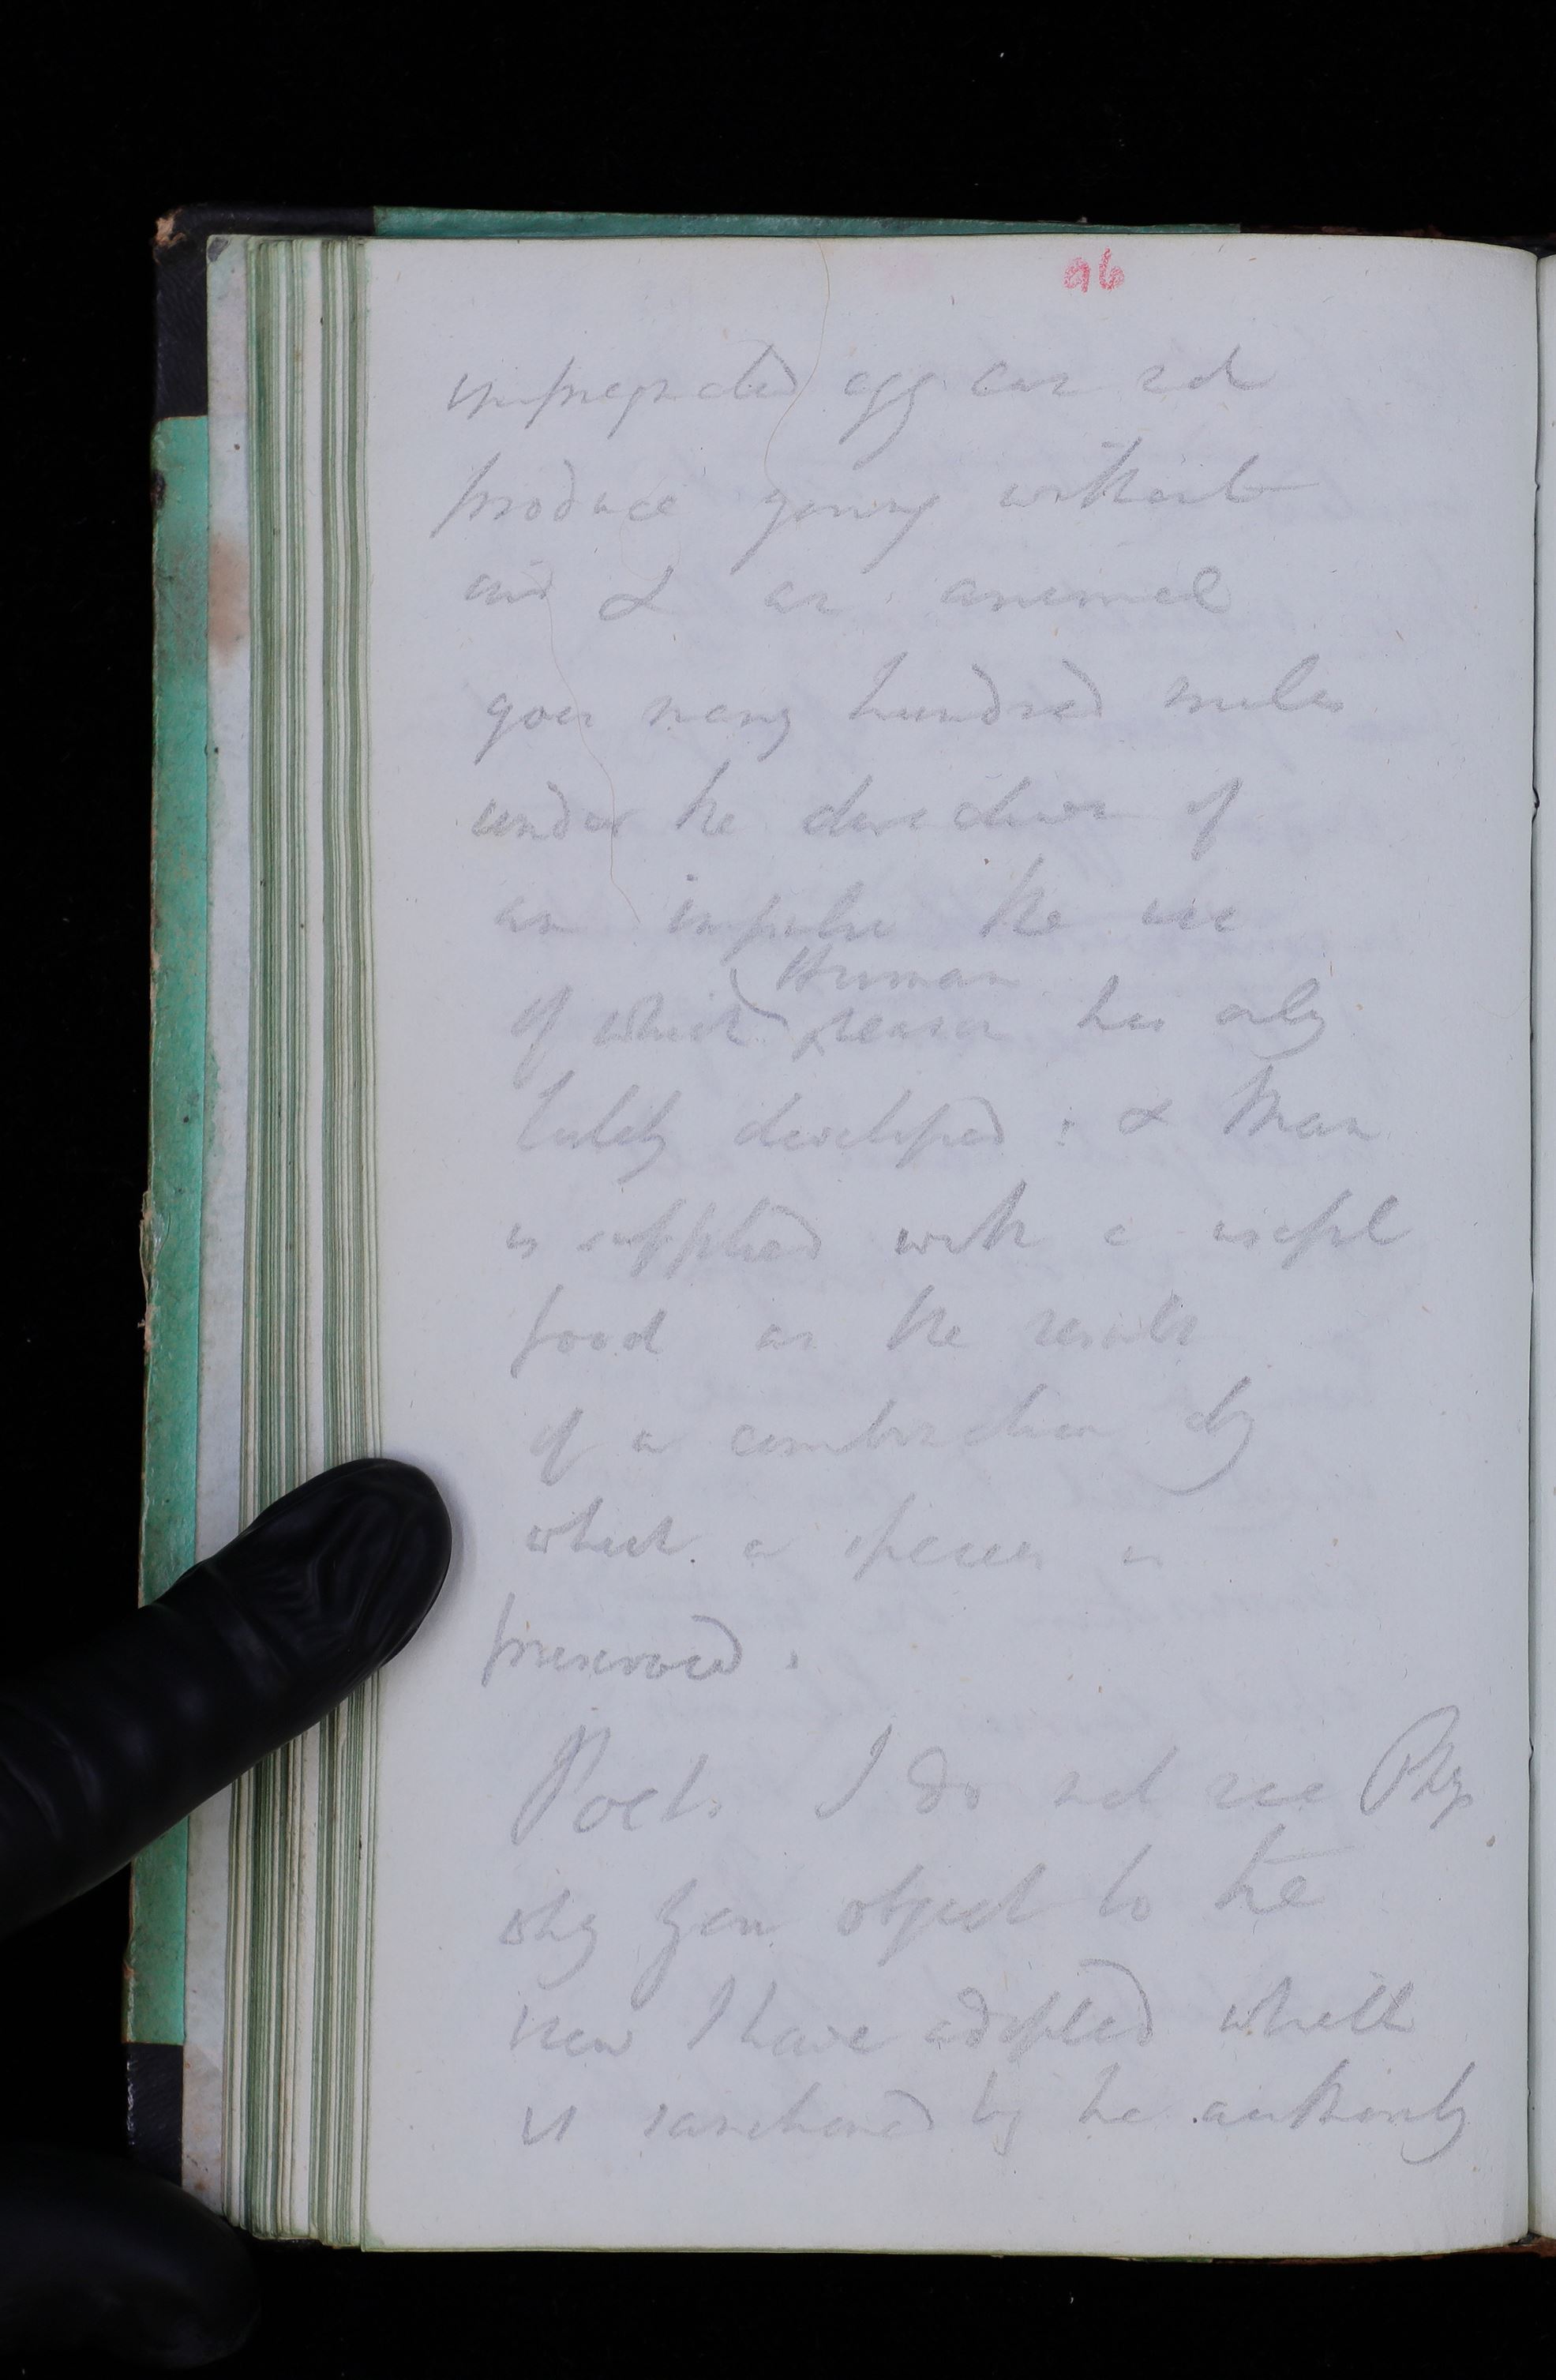 96
impregnated egg can not
produce young without
aid & an animal
goes many hundred miles
under the direction of
an impulse the use
Human
of which reason has only
lately developed: & Man
is supplied with a useful
food as the result
of a combination by
which a species is
preserved.
Poet. I do not see Phys
why you object to the
view I have adopted which
is sanctioned by the authority